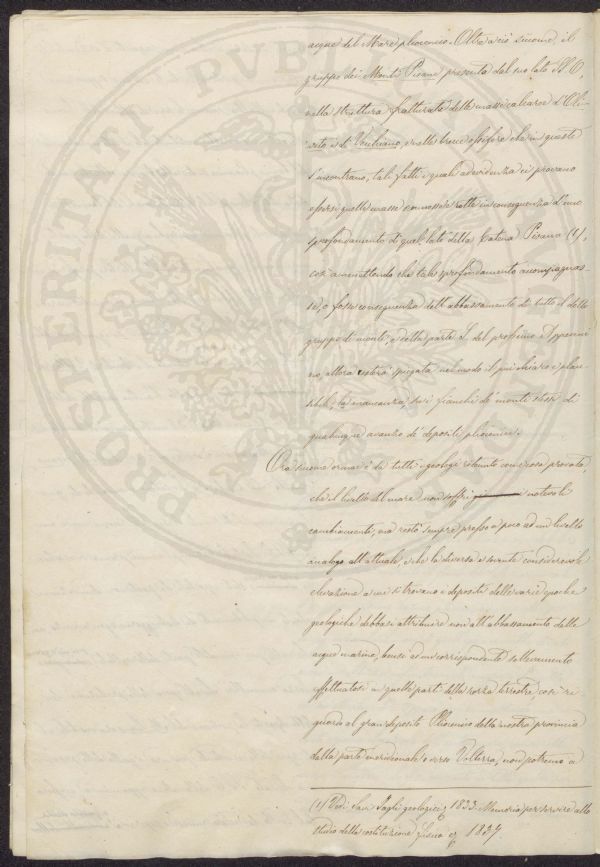 acque del Mare pliocenico. Oltre a ciò siccome il
gruppo dei Monti Pisani presenta dal suo lato S.O,
nella struttura fratturata delle masse calcaree d'Oli-
veto e di Vecchiano, e nelle brecce ossifere che in queste
s'incontrano, tali fatti i quali ad evidenza ci provano
essersi quelle masse commosse e rotte in conseguenza d'uno
sprofondamento di quel lato della Catena Pisana (1),
così ammettendo che tale sprofondamento accompagnas-
se, o fosse conseguenza dell'abbassamento di tutto il detto
gruppo di monti, e della parte S. del prossimo Appenni-
no, allora resterà spiegata nel modo il più chiaro e plau-
sibile, la mancanza, su i fianchi de' monti stessi di
qualunque avanzo de' depositi pliocenici.
Ora siccome ormai è da tutti i geologi ritenuto come cosa provata,
che il livello del mare non soffrì notevoli
cambiamenti, ma restò sempre presso a poco ad un livello
analogo all'attuale, e che la diversa e sovente considerevole
elevazione a cui si trovano i depositi delle varie epoche
geologiche debbasi attribuire non all'abbassamento delle
acque marine, bensì ad un corrispondente sollevamento
effettuatosi in quelle parti della scorza terrestre, così ri-
guardo al gran deposito Pliocenico della nostra provincia
dalla parte meridionale e verso Volterra, non potremo a
(1) Vedi Savi Tagli geologici 1833. Memoria per servire allo
studio della costituzione fisica 1837.
PROSPERITATI PVBLICAE